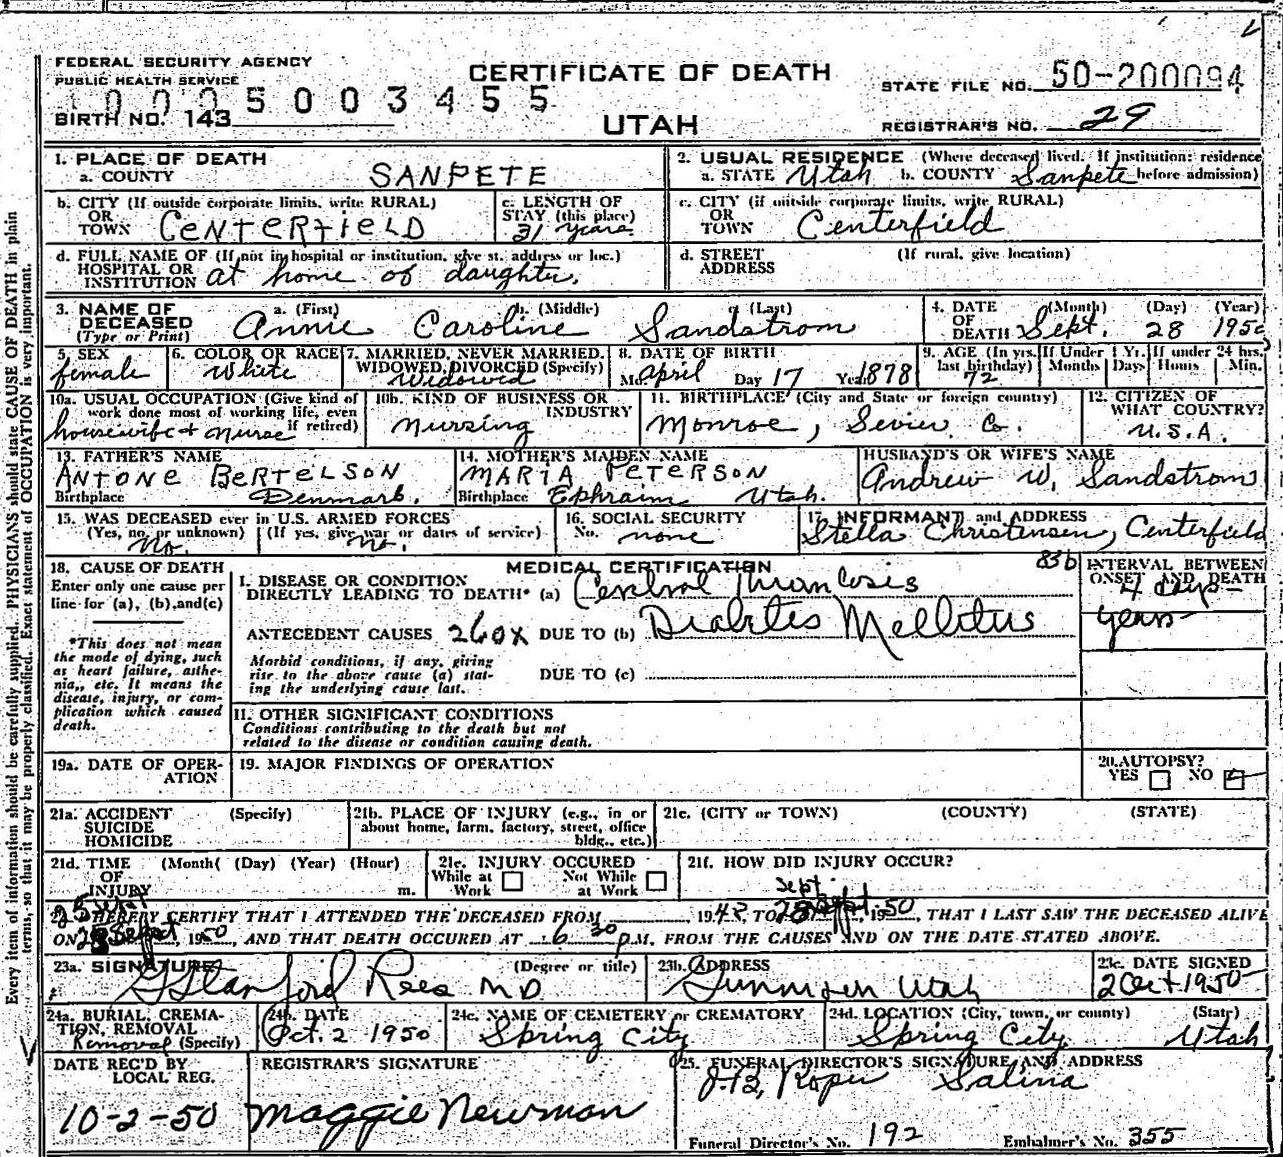 FEDERAL SECURITY AGENCY
PUBLIC HEALTH SERVICE
CERTIFICATE OF DEATH
STATE FILE NO. 50-200094
10005003455
BIRTH NO. 143
UTAH
REGISTRAR'S NO. 29
1. PLACE OF DEATH
a. COUNTY SANPETE
2. USUAL RESIDENCE (Where deceased lived. If institution: residence before admission)
a. STATE Utah b. COUNTY Sanpete
b. CITY (If outside corporate limits, write RURAL)
OR
TOWN CENTERFIELD
c. LENGTH OF
STAY (this place)
31 years
c. CITY (if outside corporate limits, write RURAL)
OR
TOWN Centerfield
d. FULL NAME OF (If not in hospital or institution, give st. address or loc.)
HOSPITAL OR
INSTITUTION at home of daughter.
d. STREET (If rural, give location)
ADDRESS
3. NAME OF
DECEASED
(Type or Print)
a. (First) b. (Middle) c. (Last)
Annie Caroline Sandstrom
4. DATE (Month) (Day) (Year)
OF
DEATH Sept. 28 1950
5. SEX
female
6. COLOR OR RACE
White
7. MARRIED, NEVER MARRIED,
WIDOWED, DIVORCED (Specify)
Widowed
8. DATE OF BIRTH
Mo. April Day 17 Year 1878
9. AGE (In yrs. last birthday)
72
If Under 1 Yr.
Months Days
If under 24 hrs.
Hours Min.
10a. USUAL OCCUPATION (Give kind of
work done most of working life, even
if retired)
housewife + nurse
10b. KIND OF BUSINESS OR
INDUSTRY
Nursing
11. BIRTHPLACE (City and State or foreign country)
Monroe, Sevier Co.
12. CITIZEN OF
WHAT COUNTRY?
U.S.A.
13. FATHER'S NAME
ANTONE BERTELSON
Birthplace Denmark.
14. MOTHER'S MAIDEN NAME
MARIA PETERSON
Birthplace Ephraim Utah.
HUSBAND'S OR WIFE'S NAME
Andrew W. Sandstrom
15. WAS DECEASED ever in U.S. ARMED FORCES
(Yes, no, or unknown) (If yes, give war or dates of service)
No. no.
16. SOCIAL SECURITY
No. none
17. INFORMANT and ADDRESS
Stella Christensen, Centerfield
18. CAUSE OF DEATH
Enter only one cause per
line for (a), (b), and (c)
*This does not mean
the mode of dying, such
as heart failure, asthe-
nia,, etc. It means the
disease, injury, or com-
plication which caused
death.
MEDICAL CERTIFICATION
83b
I. DISEASE OR CONDITION
DIRECTLY LEADING TO DEATH* (a) Cerebral Thrombosis
INTERVAL BETWEEN
ONSET AND DEATH
4 days
ANTECEDENT CAUSES 260X DUE TO (b) Diabetes Mellitus
years
Morbid conditions, if any, giving
rise to the above cause (a) stat-
ing the underlying cause last.
DUE TO (c)
II. OTHER SIGNIFICANT CONDITIONS
Conditions contributing to the death but not
related to the disease or condition causing death.
19a. DATE OF OPER-
ATION
19. MAJOR FINDINGS OF OPERATION
20. AUTOPSY?
YES NO
21a. ACCIDENT (Specify)
SUICIDE
HOMICIDE
21b. PLACE OF INJURY (e.g., in or
about home, farm, factory, street, office
bldg., etc.)
21c. (CITY or TOWN) (COUNTY) (STATE)
21d. TIME (Month( (Day) (Year) (Hour)
OF
INJURY m.
21e. INJURY OCCURED
While at Not While
Work at Work
21f. HOW DID INJURY OCCUR?
Sept
HEREBY CERTIFY THAT I ATTENDED THE DECEASED FROM 19 TO 28 Sept 1950, THAT I LAST SAW THE DECEASED ALIVE
ON Sept, 1950, AND THAT DEATH OCCURED AT 6 30 P.M. FROM THE CAUSES AND ON THE DATE STATED ABOVE.
23a. SIGNATURE (Degree or title)
G Stanford Rees MD
23b. ADDRESS
Gunnison Utah
23c. DATE SIGNED
2 Oct 1950
24a. BURIAL, CREMA-
TION, REMOVAL
Removal (Specify)
24b. DATE
Oct. 2 1950
24c. NAME OF CEMETERY or CREMATORY
Spring City
24d. LOCATION (City, town, or county) (State)
Spring City Utah
DATE REC'D BY
LOCAL REG.
10-2-50
REGISTRAR'S SIGNATURE
Maggie Newman
25. FUNERAL DIRECTOR'S SIGNATURE AND ADDRESS
Roper Salina
Funeral Director's No. 192 Embalmer's No. 355
Every item of information should be carefully supplied. PHYSICIANS should state CAUSE OF DEATH in plain
terms, so that it may be properly classified. Exact statement of OCCUPATION is very important.